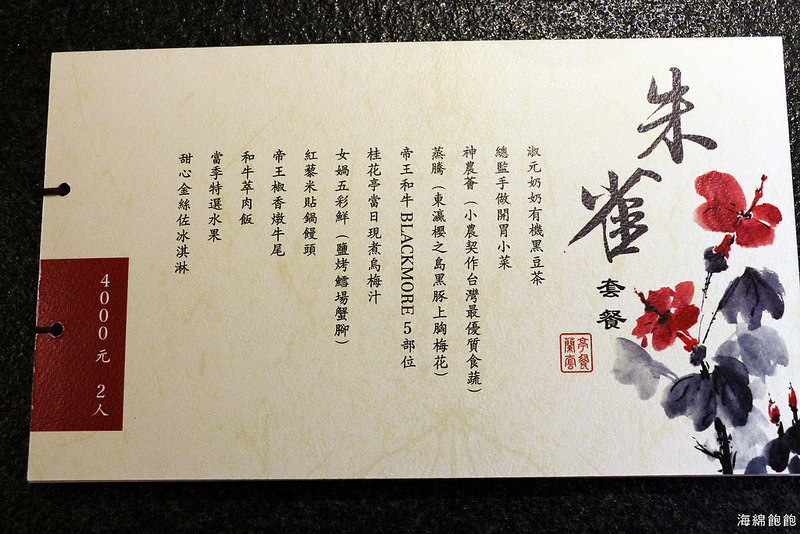 朱雀
套餐
淑元奶奶有機黑豆茶
總監手做開胃小菜
神農薈（小農契作台灣最優質食蔬）
蒸騰（東瀛櫻之島黑豚上胸梅花）
帝王和牛 BLACKMORE 5 部位
桂花亭當日現煮烏梅汁
女媧五彩鮮（鹽烤鱈場蟹腳）
紅藜米貼鍋饅頭
帝王椒香燉牛尾
和牛萃肉飯
當季特選水果
甜心金絲佐冰淇淋
4000元 2人
海綿飽飽